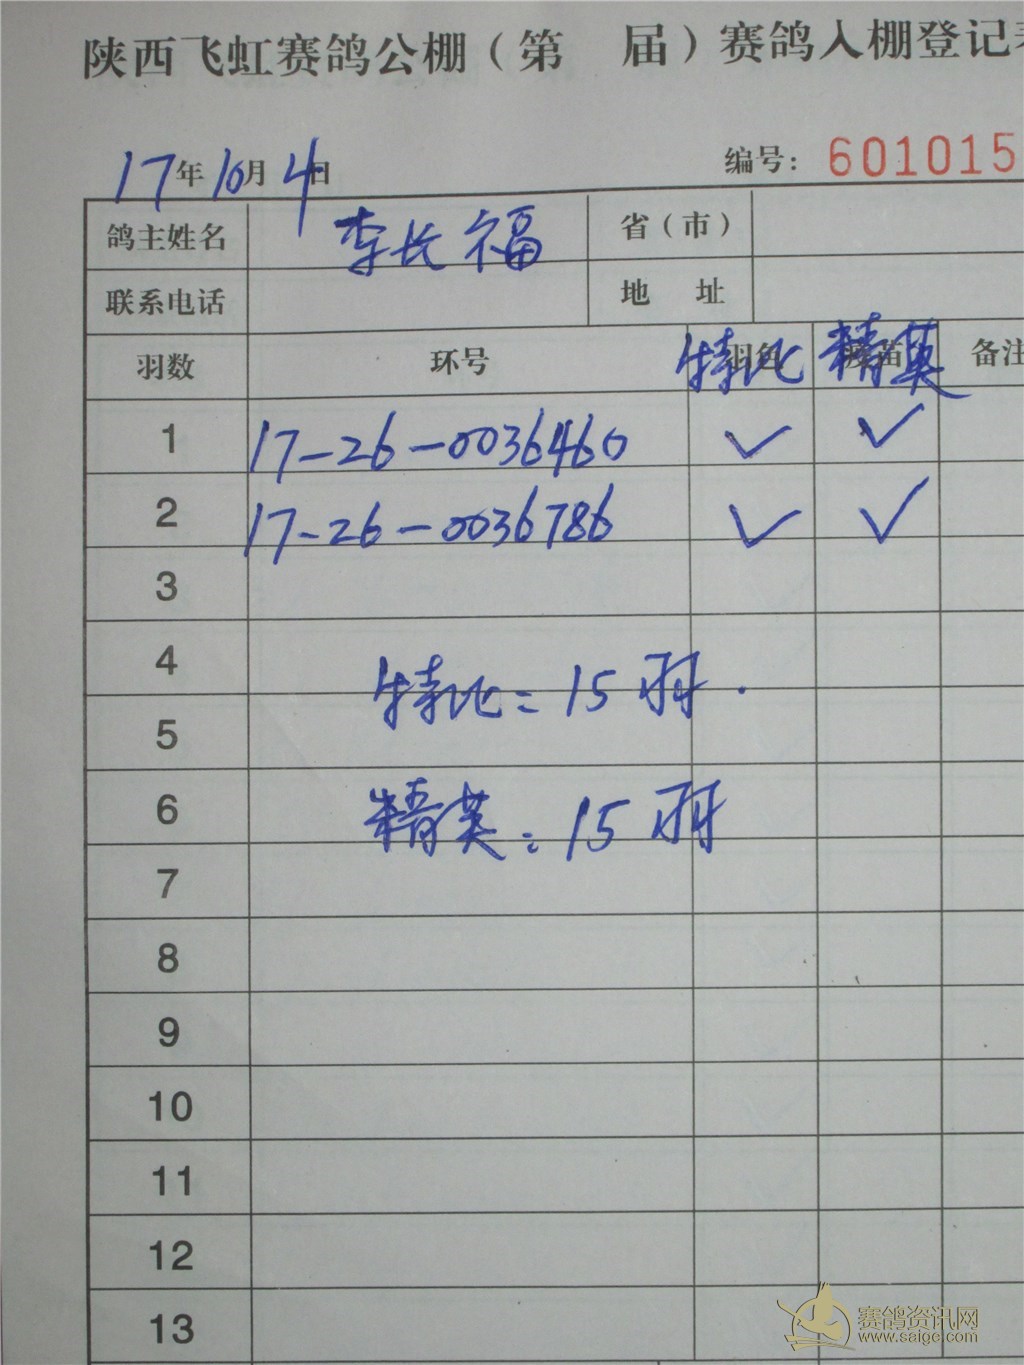 陕西飞虹赛鸽公棚（第 届）赛鸽入棚登记表
17年10月4日 编号：601015
鸽主姓名 李长福 省（市）
联系电话 地 址
羽数 环号 特比 精英 备注
1 17-26-0036460 ✓ ✓
2 17-26-0036786 ✓ ✓
3
4
特比=15羽.
5
6
精英:15羽
7
8
9
10
11
12
13
赛鸽资讯网
www.saige.com